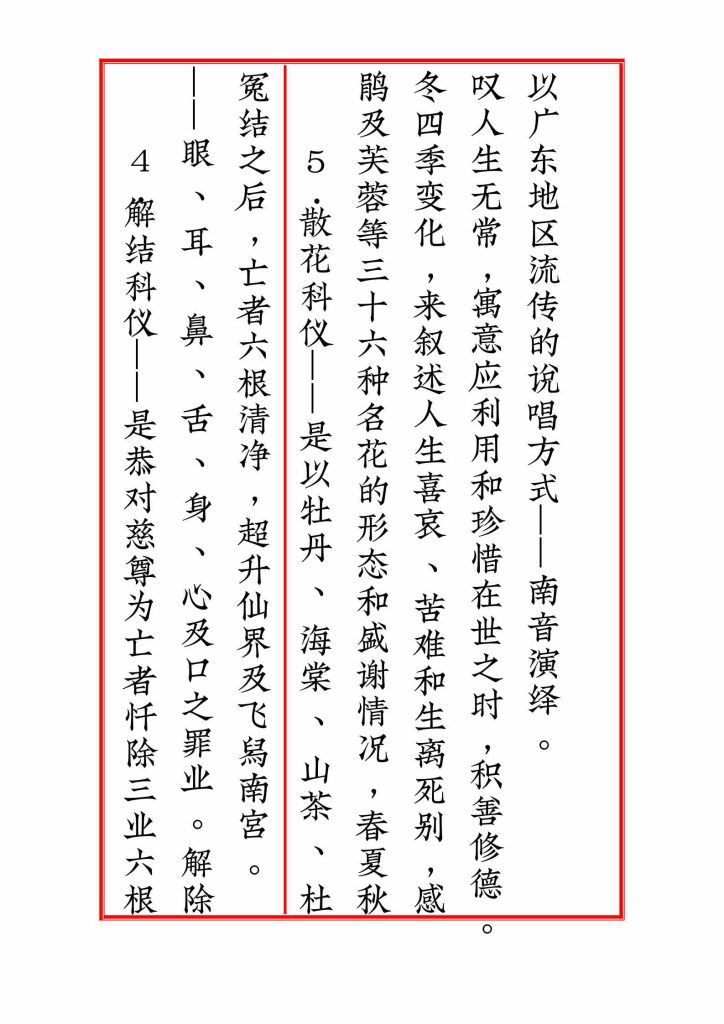 4.解结科仪——是恭对慈尊为亡者忏除三业六根
——眼、耳、鼻、舌、身、心及口之罪业。解除
冤结之后，亡者六根清净，超升仙界及飞舄南宫。
5.散花科仪——是以牡丹、海棠、山茶、杜
鹃及芙蓉等三十六种名花的形态和盛谢情况，春夏秋
冬四季变化，来叙述人生喜哀、苦难和生离死别，感
叹人生无常，寓意应利用和珍惜在世之时，积善修德。
以广东地区流传的说唱方式——南音演绎。